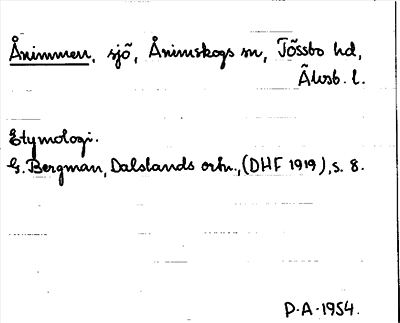 Ånimmen, sjö, Ånimskogs sn, Tössbo hd,
Älvsb. l.
Etymologi.
G. Bergman, Dalslands ortn., (DHF 1919), s. 8.
P.A. 1954.